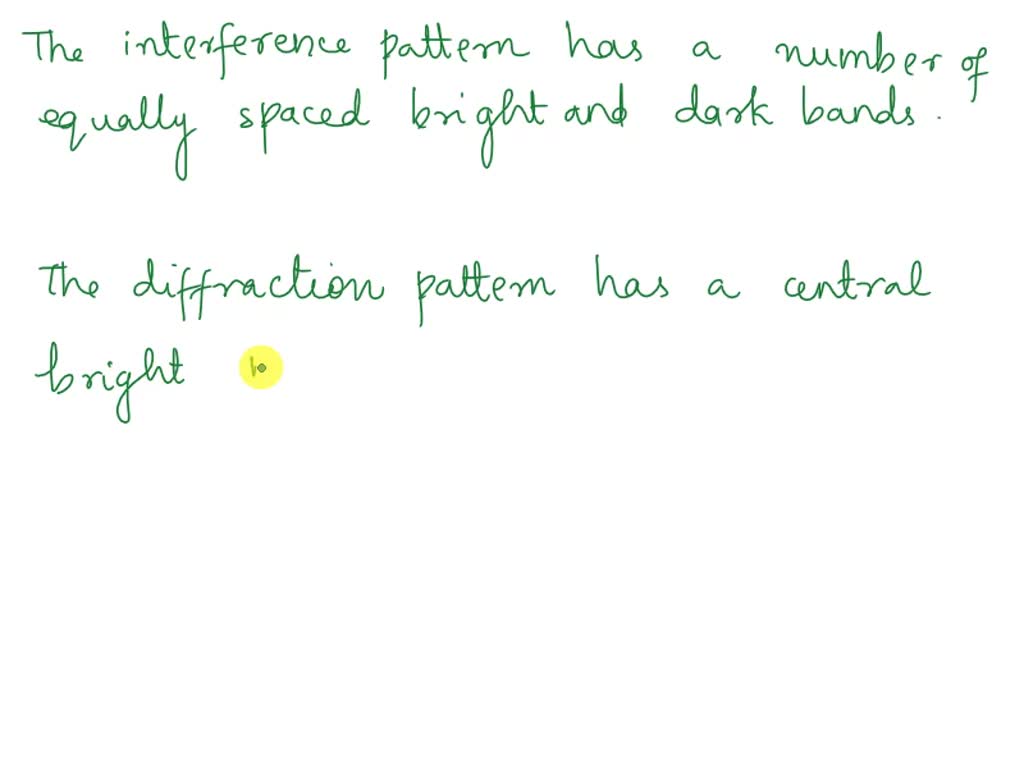 The interference pattern has a number of
equally spaced bright and dark bands.
The diffraction pattern has a central
bright